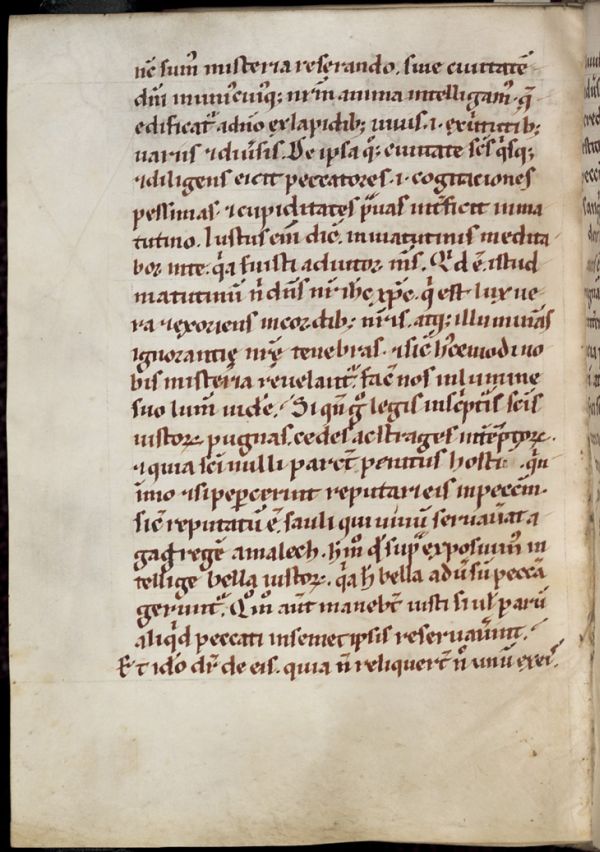 nc̄ sum᷒ misteria reserando. siue ciuitatē
dn̄i uniuscuiusq; nr̄m anima intelligam᷒. q̄
edificat᷒ a dn̄o ex lapidib; uiuis .i. ex uirtutib;
uariis ⁊ diu͛sis. De ipsa g͛. ciuitate sc̄s q͛sq;
⁊ diligens eicit peccatores .i. cogitaciones
pessimas. ⁊ cupiditates p͛uas int͛ficit in ma
tutino. Iustus em̄ dic̄. in matutinis medita
bor in te. q͛a fuisti adiutor ms̄. Q͛d ē. istud
matutinū n̄ dn̄s nr̄ ih̄c xp̄c. q͛ est lux ue
ra ⁊ exoriens in cordib; nr̄is. atq; illuminās
ignorantię nr̄ę tenebras. ⁊ sic̄ h͛cemodi no
bis misteria reuelant᷒. fac̄ nos in lumine
suo lum̄ uidē. Si qn̄ g͛ legis in sc͛pt͛is sc̄is
iustoꝝ pugnas. cedes ac strages int͛emptoꝝ.
⁊ quia sc̄i nulli parct̄ penitus hosti q͛n
immo ⁊ si pepercerint reputari eis in pecc̄m.
sic̄ reputatū ē. sauli qui uiuū seruau͛at a
gag regē amalech. h͛m᷒ q͛ sup͛ exposuim᷒ in
tellige bella iustoꝝ. q͛a h̄ bella adu͛sū peccā
gerunt᷒. Q͛m᷒ aut̄ manebt̄ iusti si uł parū
aliq͛d peccati in semet ipsis reseruau͛int.
Et ido͛ dr̄ de eis. quia n̄ reliquert̄ n͛ unū ex eis.